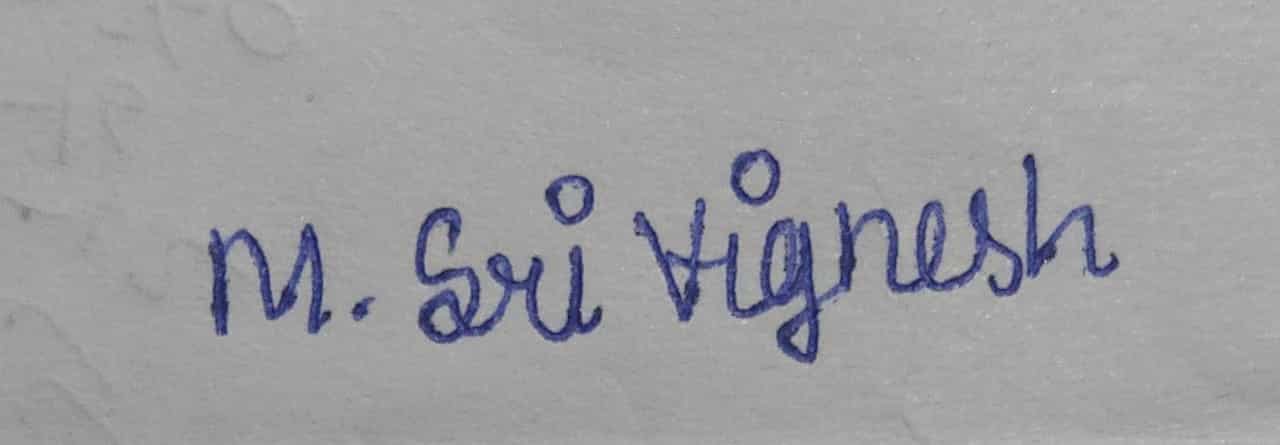 M. Sri Vignesh